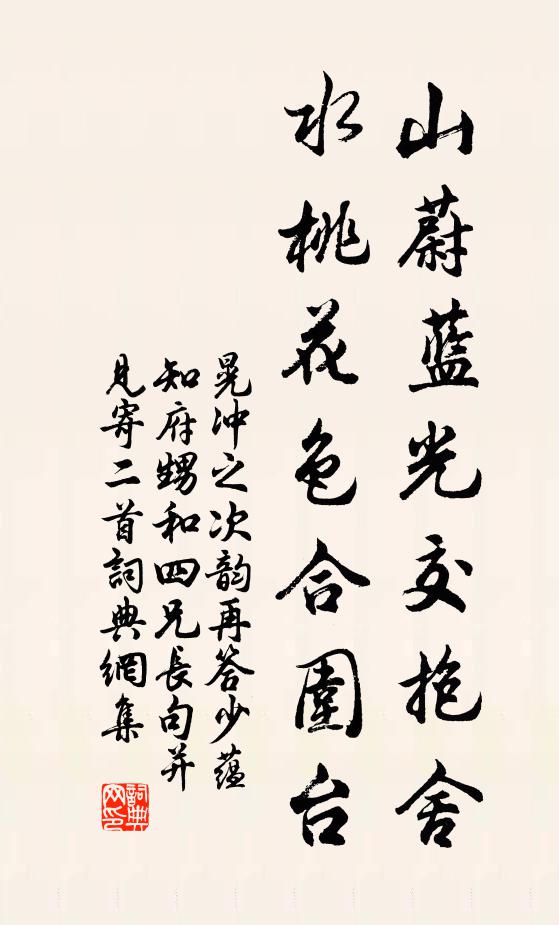 山蔚蓝光交抱舍
水桃花色合圍台
晃沖之次韵再答少蕴
知府甥和四兄長句并
見寄二首詞典網集
詞典网印